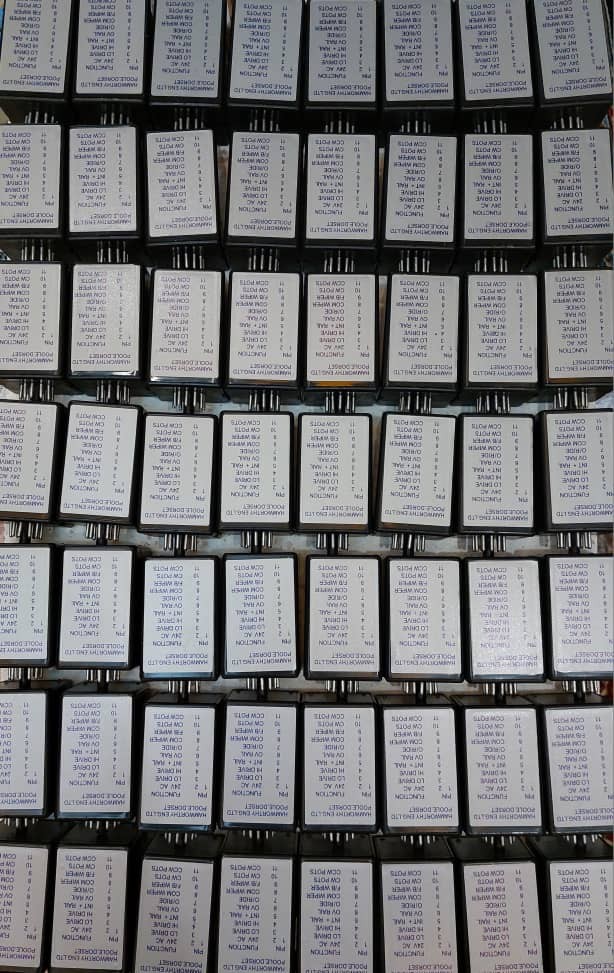 HAMWORTHY ENG LTD
POOLE DORSET
PIN FUNCTION
1 2 AC 24V
3 LO DRIVE
4 HI DRIVE
5 INT + RAIL
6 OV RAIL
7 O/RIDE
8 COM WIPER
9 F/B WIPER
10 CW POTS
11 CCW POTS